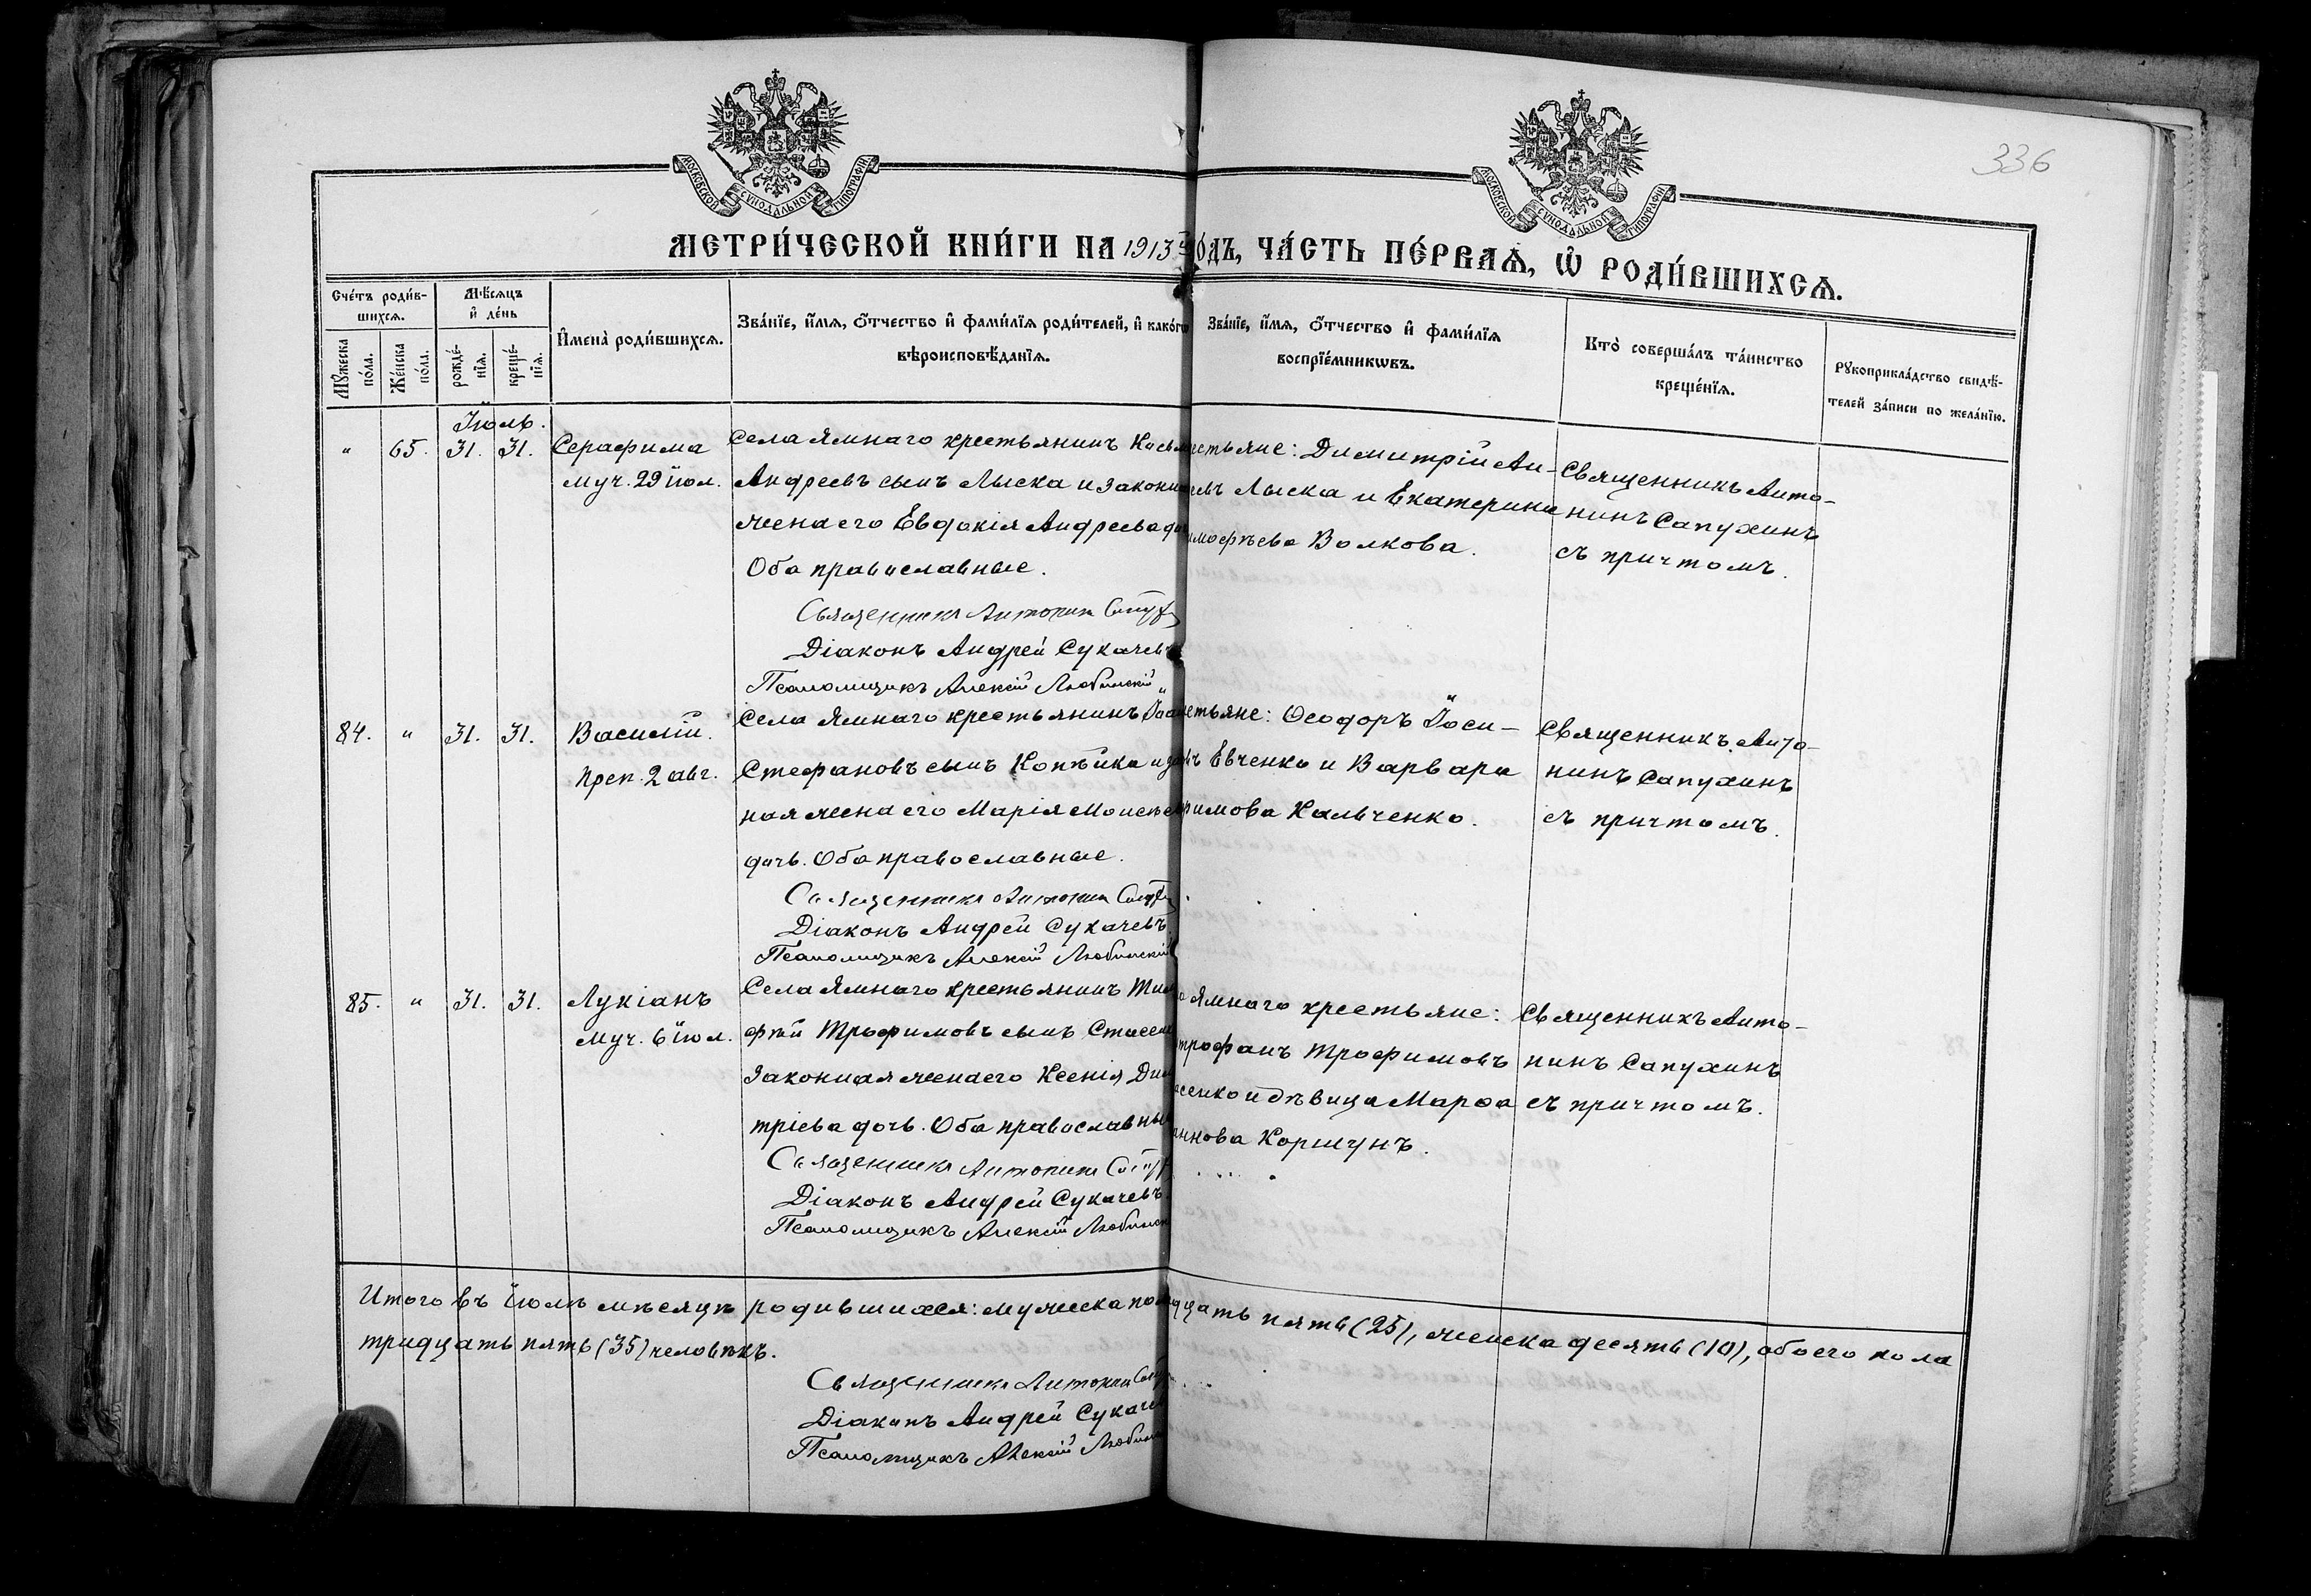 336
МОСКОВСКОЙ СѴНОДАЛЬНОЙ ТИПОГРАФІИ
МОСКОВСКОЙ СѴНОДАЛЬНОЙ ТИПОГРАФІИ
МЕТРИ́ЧЕСКОЙ КНИ́ГИ НА 1913 го́дъ, ЧА́СТЬ ПЕ́РВАѦ, Ѡ҆ РОДИ́ВШИХСѦ.
Сче́тъ роди́в-
шихсѧ.
Мꙋ́жеска по́ла.
Же́нска по́ла.
Мѣ́сѧцъ и҆ де́нь
рожде́-
нїѧ.
креще́-
нїѧ.
И҆мена̀ роди́вшихсѧ.
Зва́нїе, и҆́мѧ, ѻ҆́тчество и҆ фами́лїѧ роди́телей, и҆ како́гѡ
вѣроисповѣ́данїѧ.
Зва́нїе, и҆́мѧ, ѻ҆́тчество и҆ фами́лїѧ
воспрїе́мникѡвъ.
Кто̀ соверша́лъ та́инство
креще́нїѧ.
Рꙋкоприкла́дство свидѣ́-
телей за́писи по жела́нїю.
Іюль.
" 65. 31. 31. Серафима
муч. 29 іюл.
Села Ямнаго крестьянинъ Косьм
Андреевъ сынъ Лыска и законн
жена его Евдокія Андреева до
Оба православные.
Священникъ Антонин Сапух
Діаконъ Андрей Сукачевъ
Псаломщикъ Алексій Любимскій
естьяне: Димитрій Ан-
въ Лыска и Екатерина
имофѣева Волкова.
Священникъ Анто-
нинъ Сапухинъ
съ причтомъ.
84. " 31. 31. Василій.
Преп. 2 авг.
Села Ямнаго крестьянинъ Іоан
Стефановъ сынъ Копѣйка и зак
ная жена его Марія Моисѣев
дочь. Оба православные.
Священникъ Антонин Сапух
Діаконъ Андрей Сукачевъ.
Псаломщикъ Алексій Любимскій
естьяне: Ѳеодоръ Іоси-
въ Евченко и Варвара
римова Кальченко.
Священникъ Анто-
нинъ Сапухинъ
съ причтомъ.
85. " 31. 31. Лукіанъ
муч. 6 іюл.
Села Ямнаго крестьянинъ Тим
фѣй Трофимовъ сынъ Стасен
законная жена его Ксенія Дим
тріева дочь. Оба православны
Священникъ Антонин Сапух
Діаконъ Андрей Сукачевъ.
Псаломщикъ Алексій Любимск
а Ямнаго крестьяне:
трофанъ Трофимовъ
асенко и дѣвица Марѳа
аннова Коршунъ.
Священникъ Анто-
нинъ Сапухинъ
съ причтомъ.
Итого въ іюлѣ мѣсяцѣ родившихся: мужеска пол дцать пять (25), женска десять (10), обоего пола
тридцать пять (35) человѣкъ.
Священникъ Антонин Сапу
Діаконъ Андрей Сукачев
Псаломщикъ Алексій Любимс